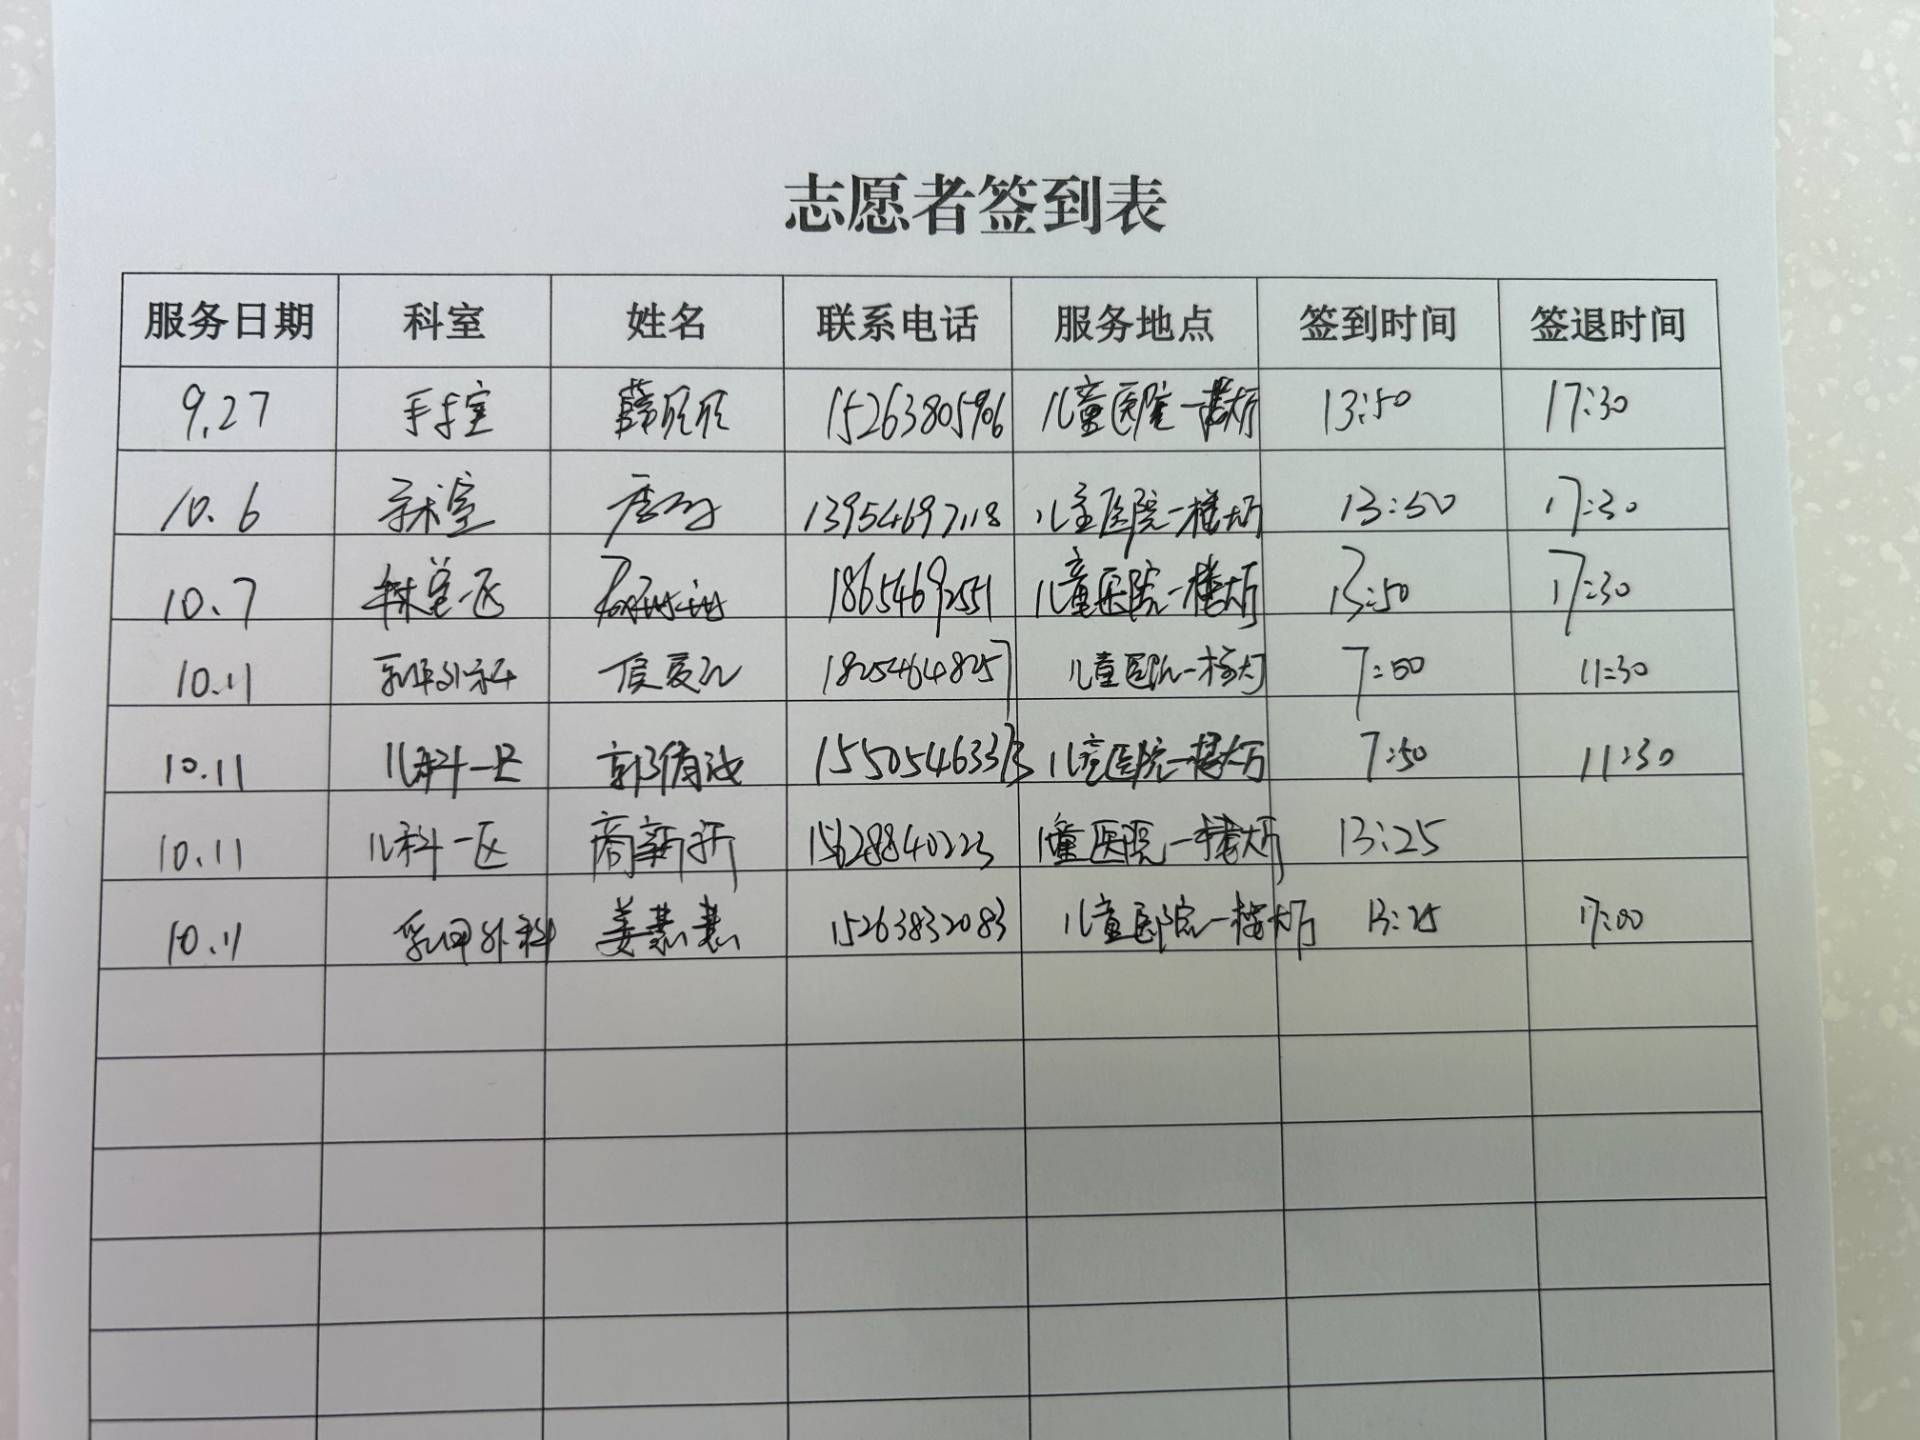 志愿者签到表
服务日期 科室 姓名 联系电话 服务地点 签到时间 签退时间
9.27 手术室 薛欣欣 15263805906 儿童医院一楼大厅 13:50 17:30
10.6 手术室 13954697118 儿童医院一楼大厅 13:50 17:30
10.7 18654692551 儿童医院一楼大厅 13:50 17:30
10.11 乳甲外科 侯爱玲 18254648257 儿童医院一楼大厅 7:50 11:30
10.11 儿科一区 15505463373 儿童医院一楼大厅 7:50 11:30
10.11 儿科一区 商新新 15628840223 儿童医院一楼大厅 13:25
10.11 乳甲外科 姜慧慧 15263832083 儿童医院一楼大厅 13:25 17:00